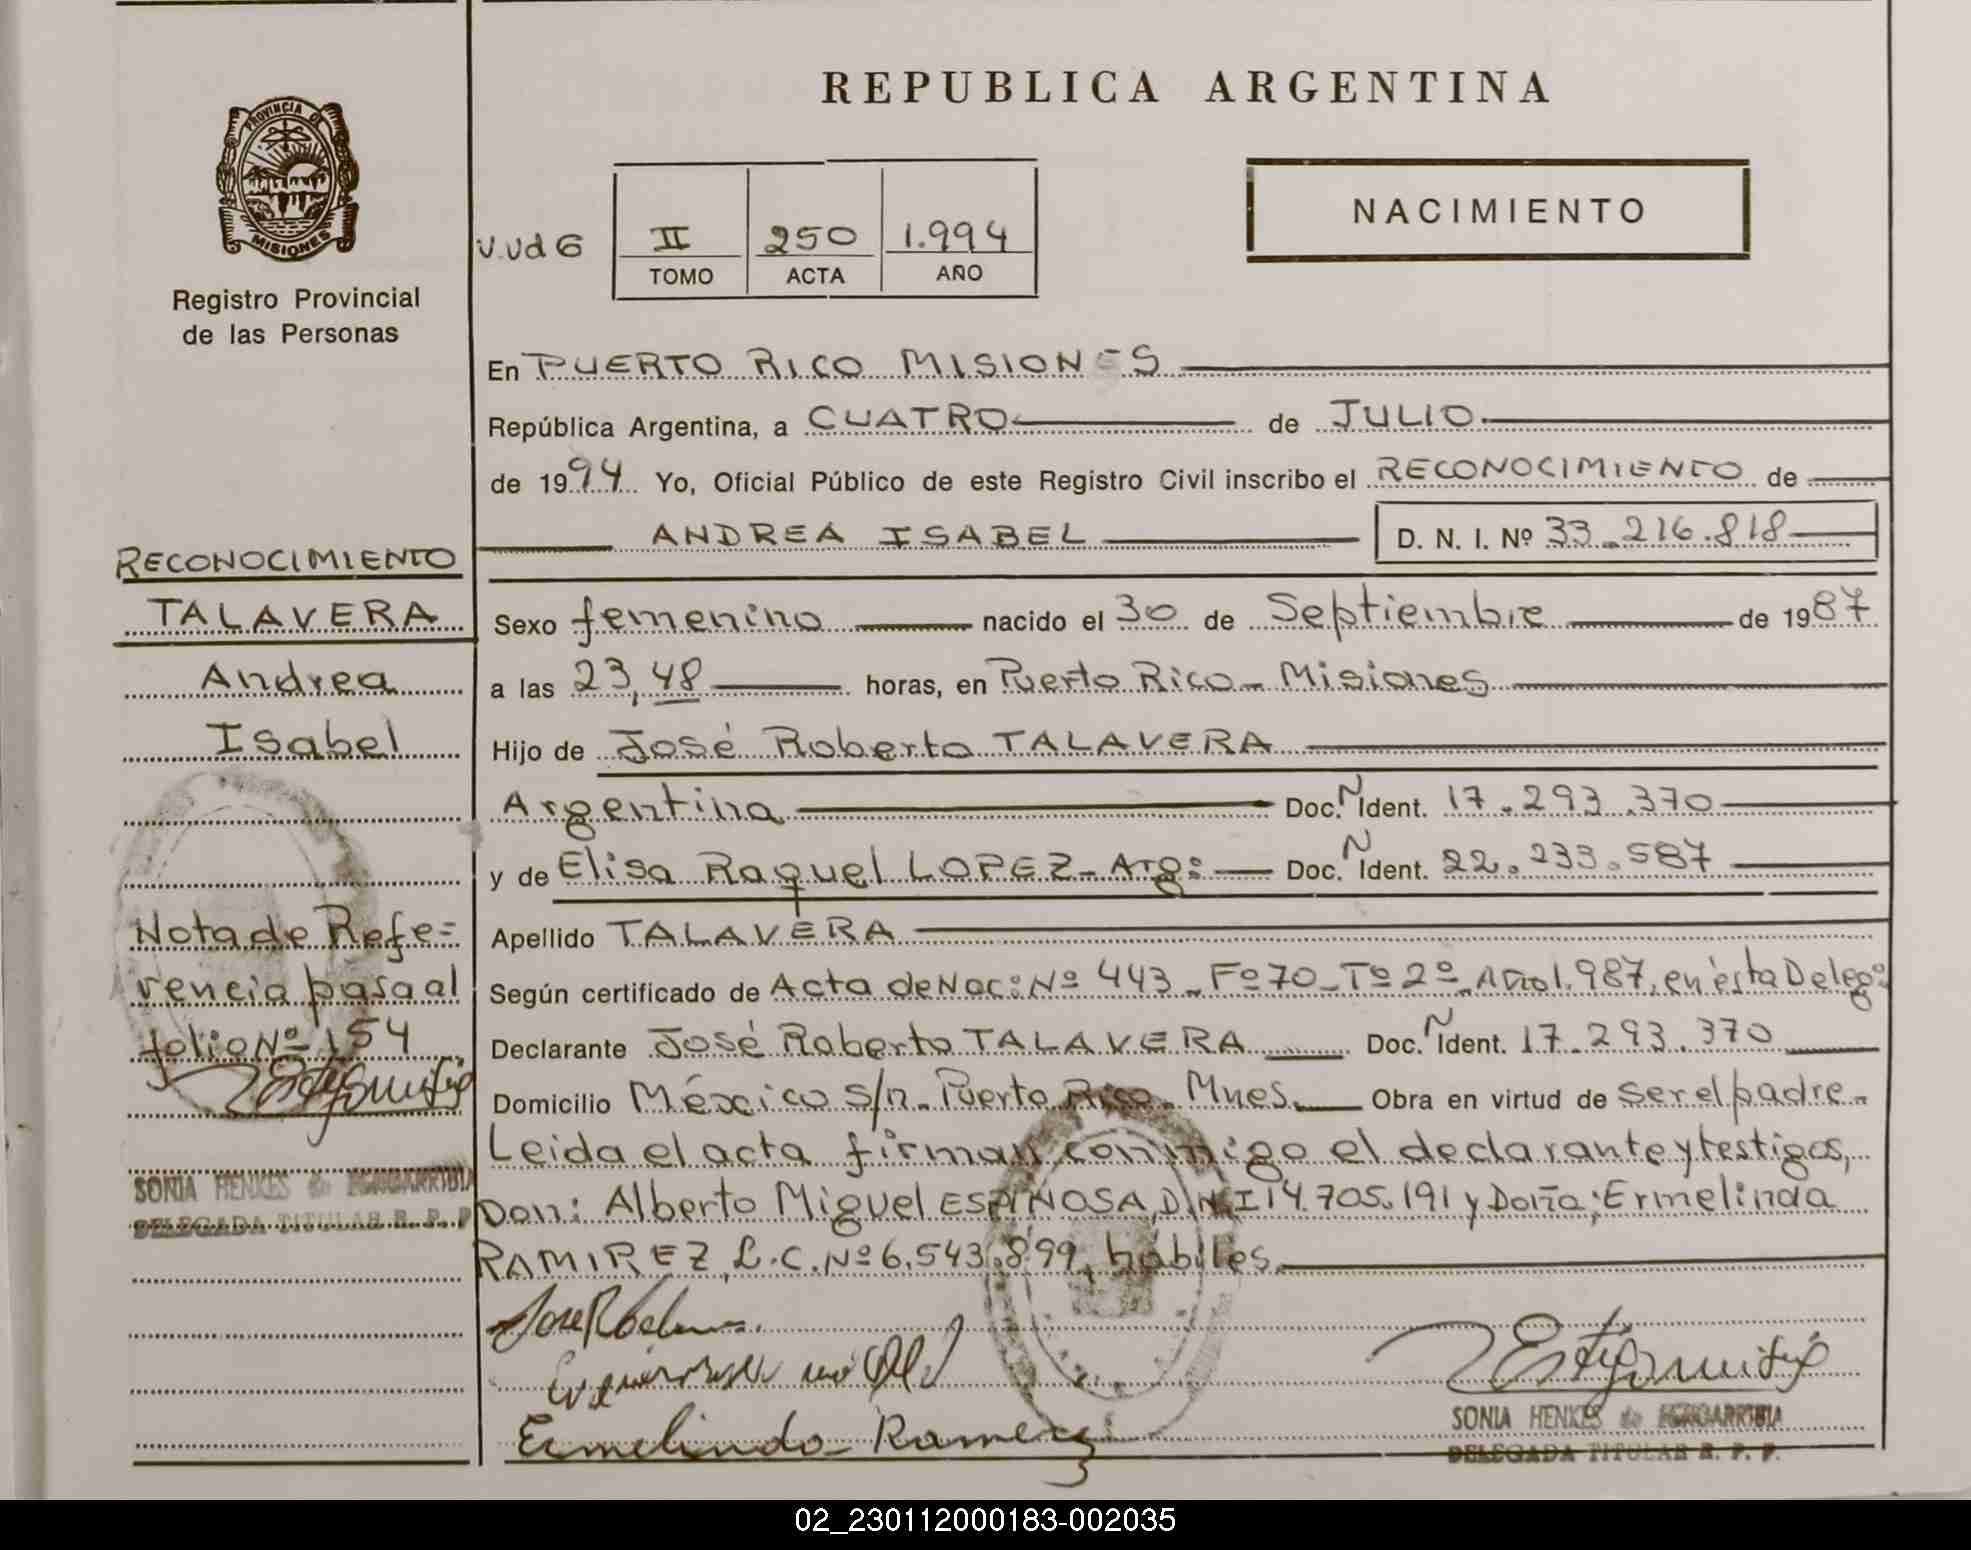 REPUBLICA ARGENTINA
PROVINCIA DE
MISIONES
Registro Provincial
de las Personas
II 250 1.994
TOMO ACTA AÑO
NACIMIENTO
En PUERTO RICO MISIONES
República Argentina, a CUATRO de JULIO.
de 1994 Yo, Oficial Público de este Registro Civil inscribo el RECONOCIMIENTO de
ANDREA ISABEL D. N. I. Nº 33.216.818
RECONOCIMIENTO
TALAVERA
Andrea
Isabel
Sexo femenino nacido el 30 de Septiembre de 1987
a las 23,48 horas, en Puerto Rico - Misiones
Hijo de José Roberto TALAVERA
Argentina Doc. N Ident. 17.293.370
y de Elisa Raquel LOPEZ - Arg: Doc. N Ident. 22.233.587
Apellido TALAVERA
Según certificado de Acta de Nac: Nº 443 - Fº 70 - Tº 2º - Año 1.987, en ésta Deleg:
Declarante José Roberto TALAVERA Doc. N Ident. 17.293.370
Domicilio México s/n - Puerto Rico - Mnes. Obra en virtud de ser el padre.
Leida el acta firman conmigo el declarante y testigos,
Don: Alberto Miguel ESPINOSA, D.N.I 14.705.191 y Doña: Ermelinda
RAMIREZ, L.C. Nº 6.543.899, hábiles.
Nota de Refe=
rencia pasa al
folio Nº 154
SONIA HENKES de
DELEGADA TITULAR R. P. P.
Ermelinda Ramirez
SONIA HENKES de
DELEGADA TITULAR R. P. P.
02_230112000183-002035